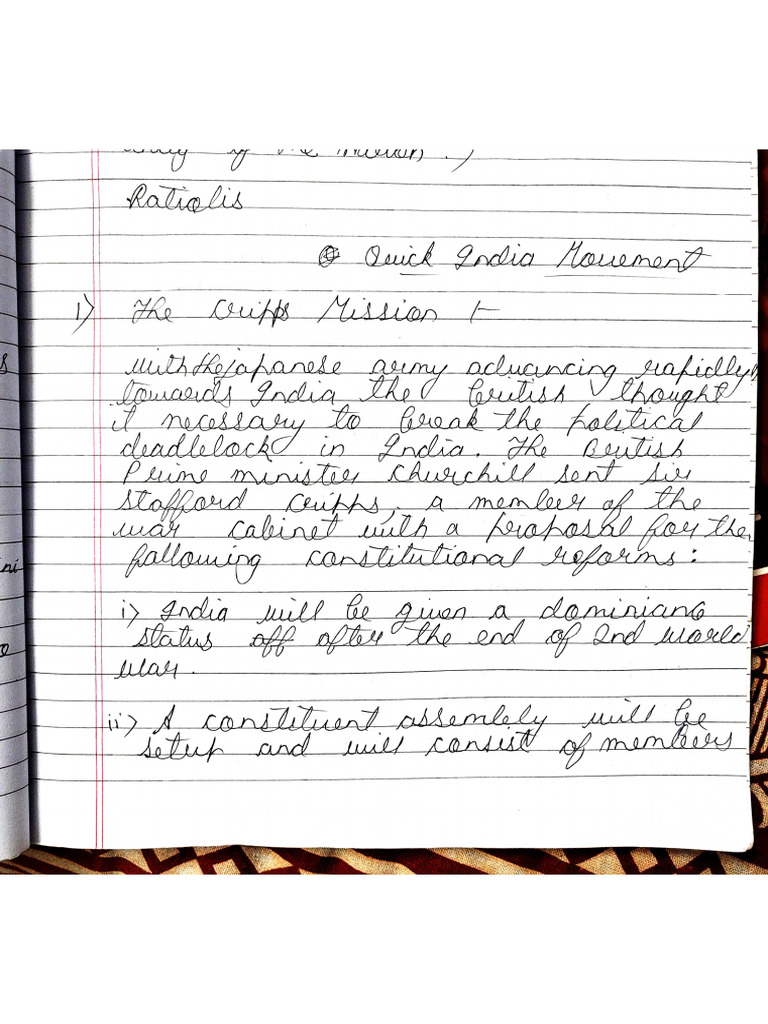 Ratialis
Quick India Movement
1) The Cripps Mission :-
with the japanese army advancing rapidly
towards India the British thought
it necessary to break the political
deadlelock in India. The British
Prime minister Churchill sent Sir
Stafford Cripps, a member of the
war cabinet with a proposal for the
following constitutional reforms:
i) India will be given a dominiano
status off after the end of 2nd world
war.
ii) A constituent assembly will be
setup and will consist of members